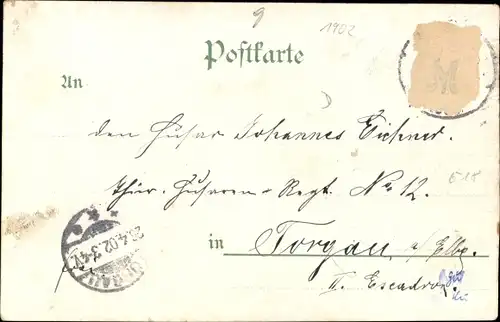 9
1902
Postkarte
An
den Husar Johannes Eichner.
Thür. Husaren-Regt. No 12.
E18
in Torgau a/ Elbe.
II. Escadron.
25.4.02.3-4N.